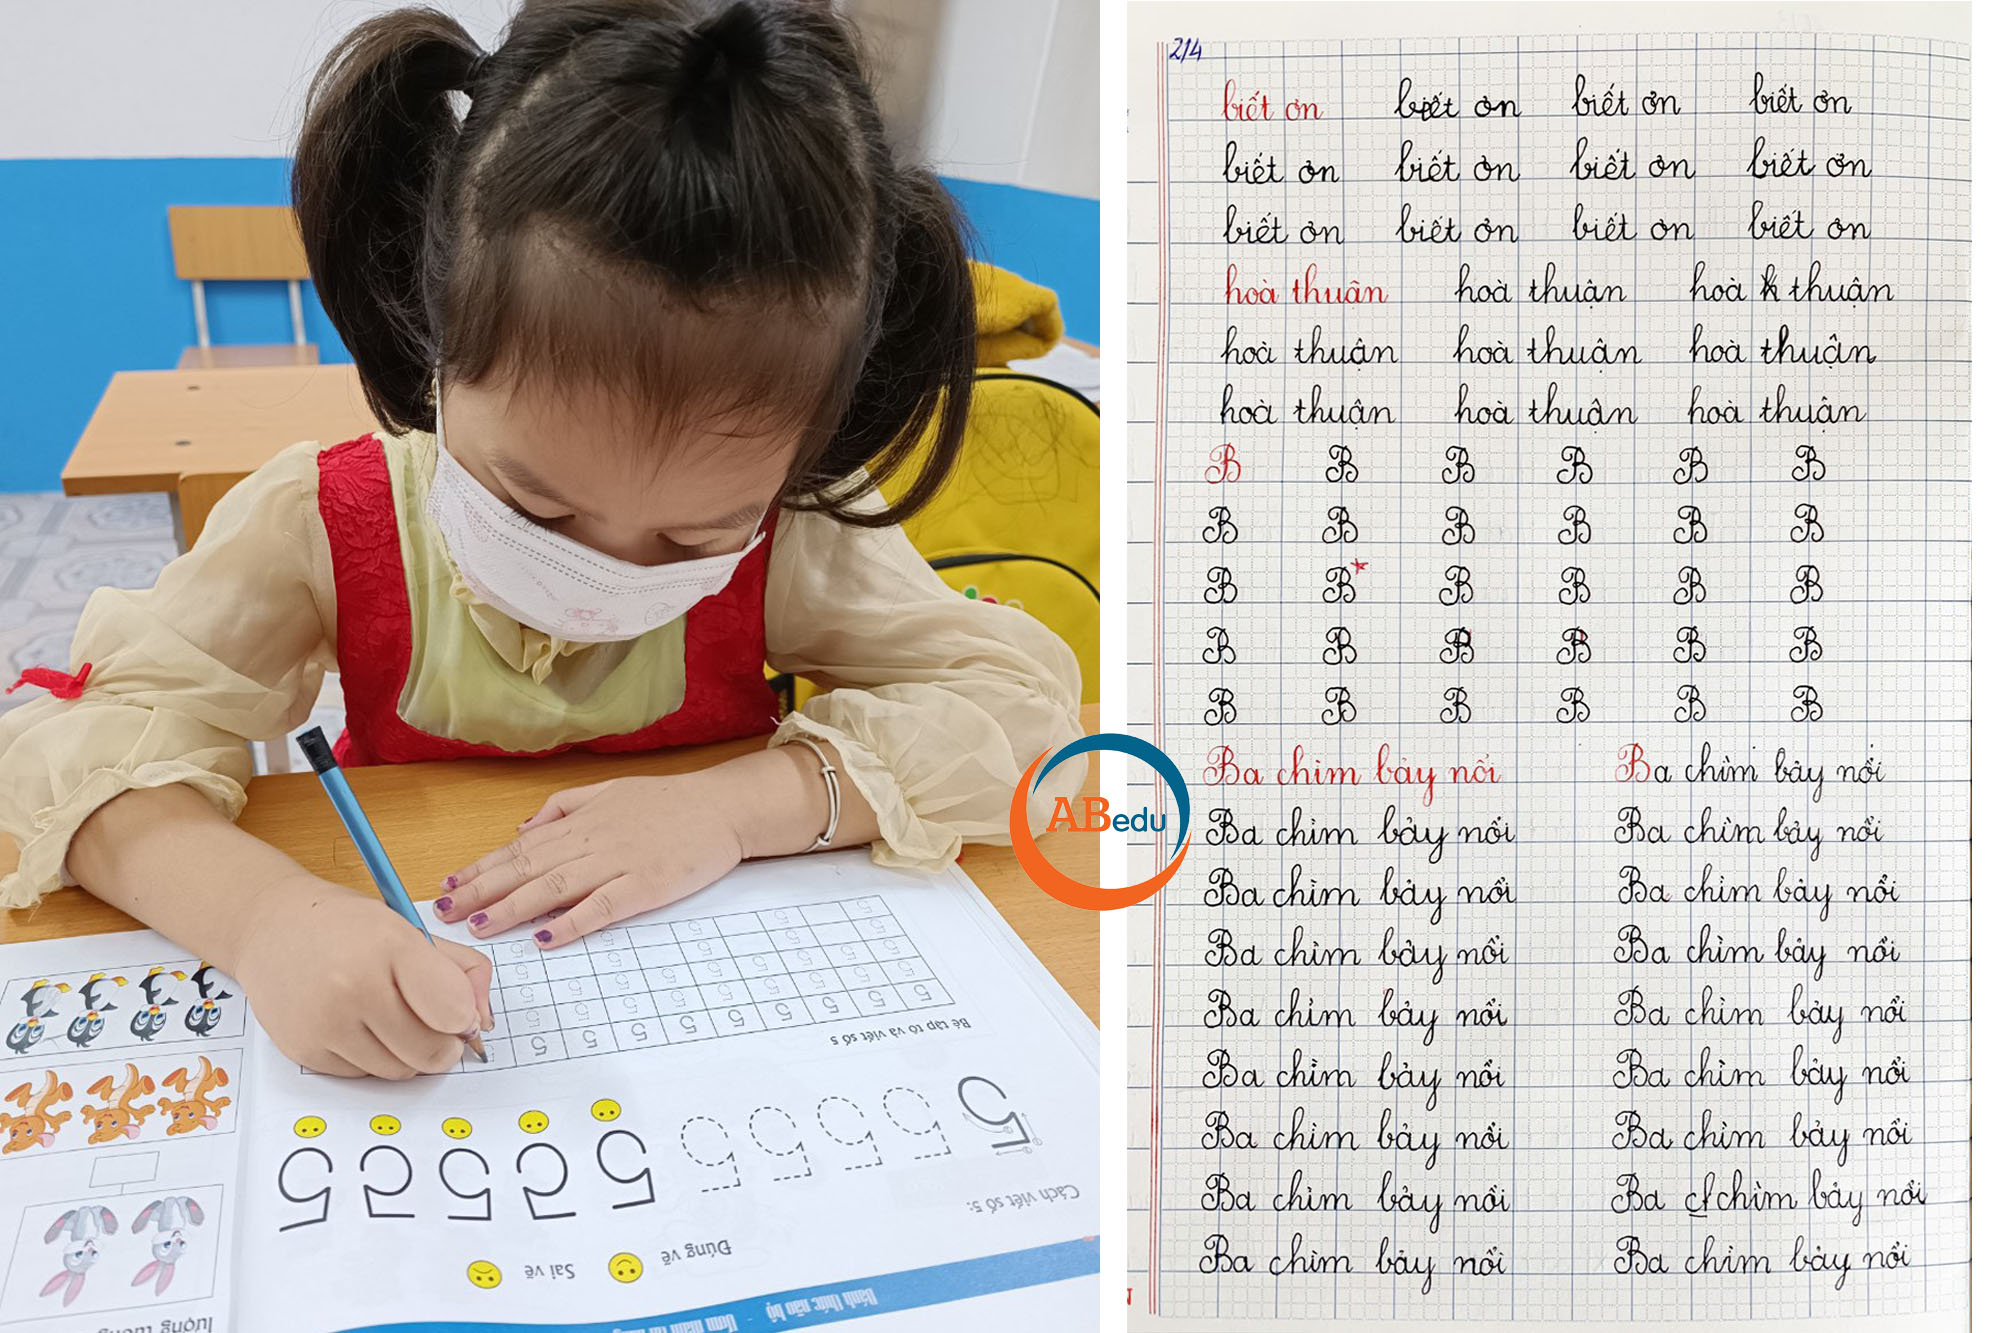 Đánh thức não bộ - Ươm mầm
Đúng vẽ Sai vẽ
Cách viết số 5:
5 5 5 5 5 5 5 5 5 5
Bé tập tô và viết số 5
5 5 5 5 5 5 5 5 5
lượng
ABedu
2/4
biết ơn biết ơn biết ơn biết ơn
biết ơn biết ơn biết ơn biết ơn
biết ơn biết ơn biết ơn biết ơn
hoà thuận hoà thuận hoà thuận
hoà thuận hoà thuận hoà thuận
hoà thuận hoà thuận hoà thuận
B B B B B B
B B B B B B
B B B B B B
B B B B B B
B B B B B B
Ba chìm bảy nổi Ba chìm bảy nổi
Ba chìm bảy nổi Ba chìm bảy nổi
Ba chìm bảy nổi Ba chìm bảy nổi
Ba chìm bảy nổi Ba chìm bảy nổi
Ba chìm bảy nổi Ba chìm bảy nổi
Ba chìm bảy nổi Ba chìm bảy nổi
Ba chìm bảy nổi Ba chìm bảy nổi
Ba chìm bảy nổi Ba chìm bảy nổi
Ba chìm bảy nổi Ba chìm bảy nổi